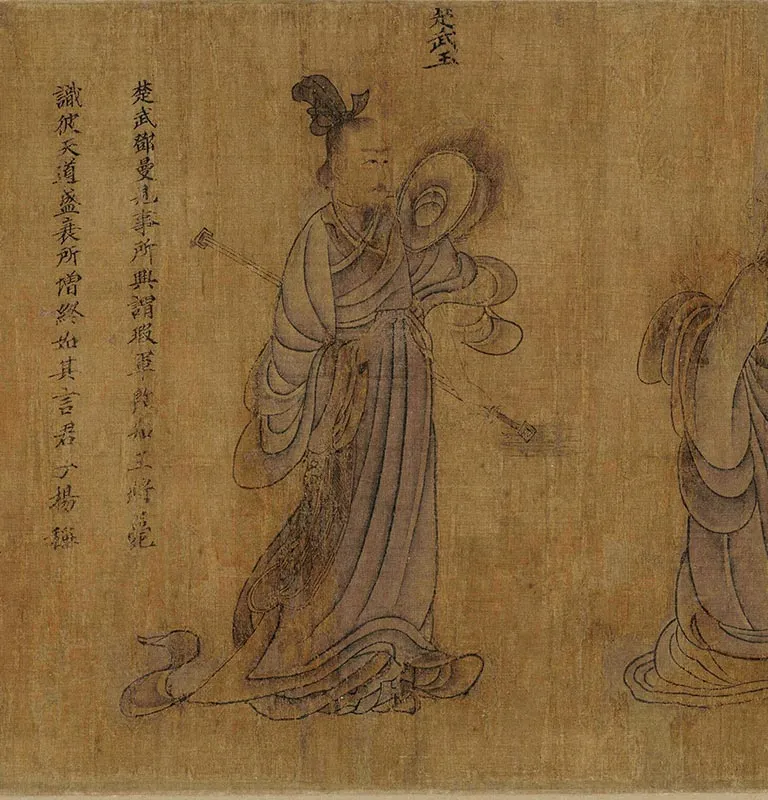 楚武王
楚武鄧曼見事所興謂瑕軍敗知王將薨
識彼天道盛衰所增終如其言君子揚稱